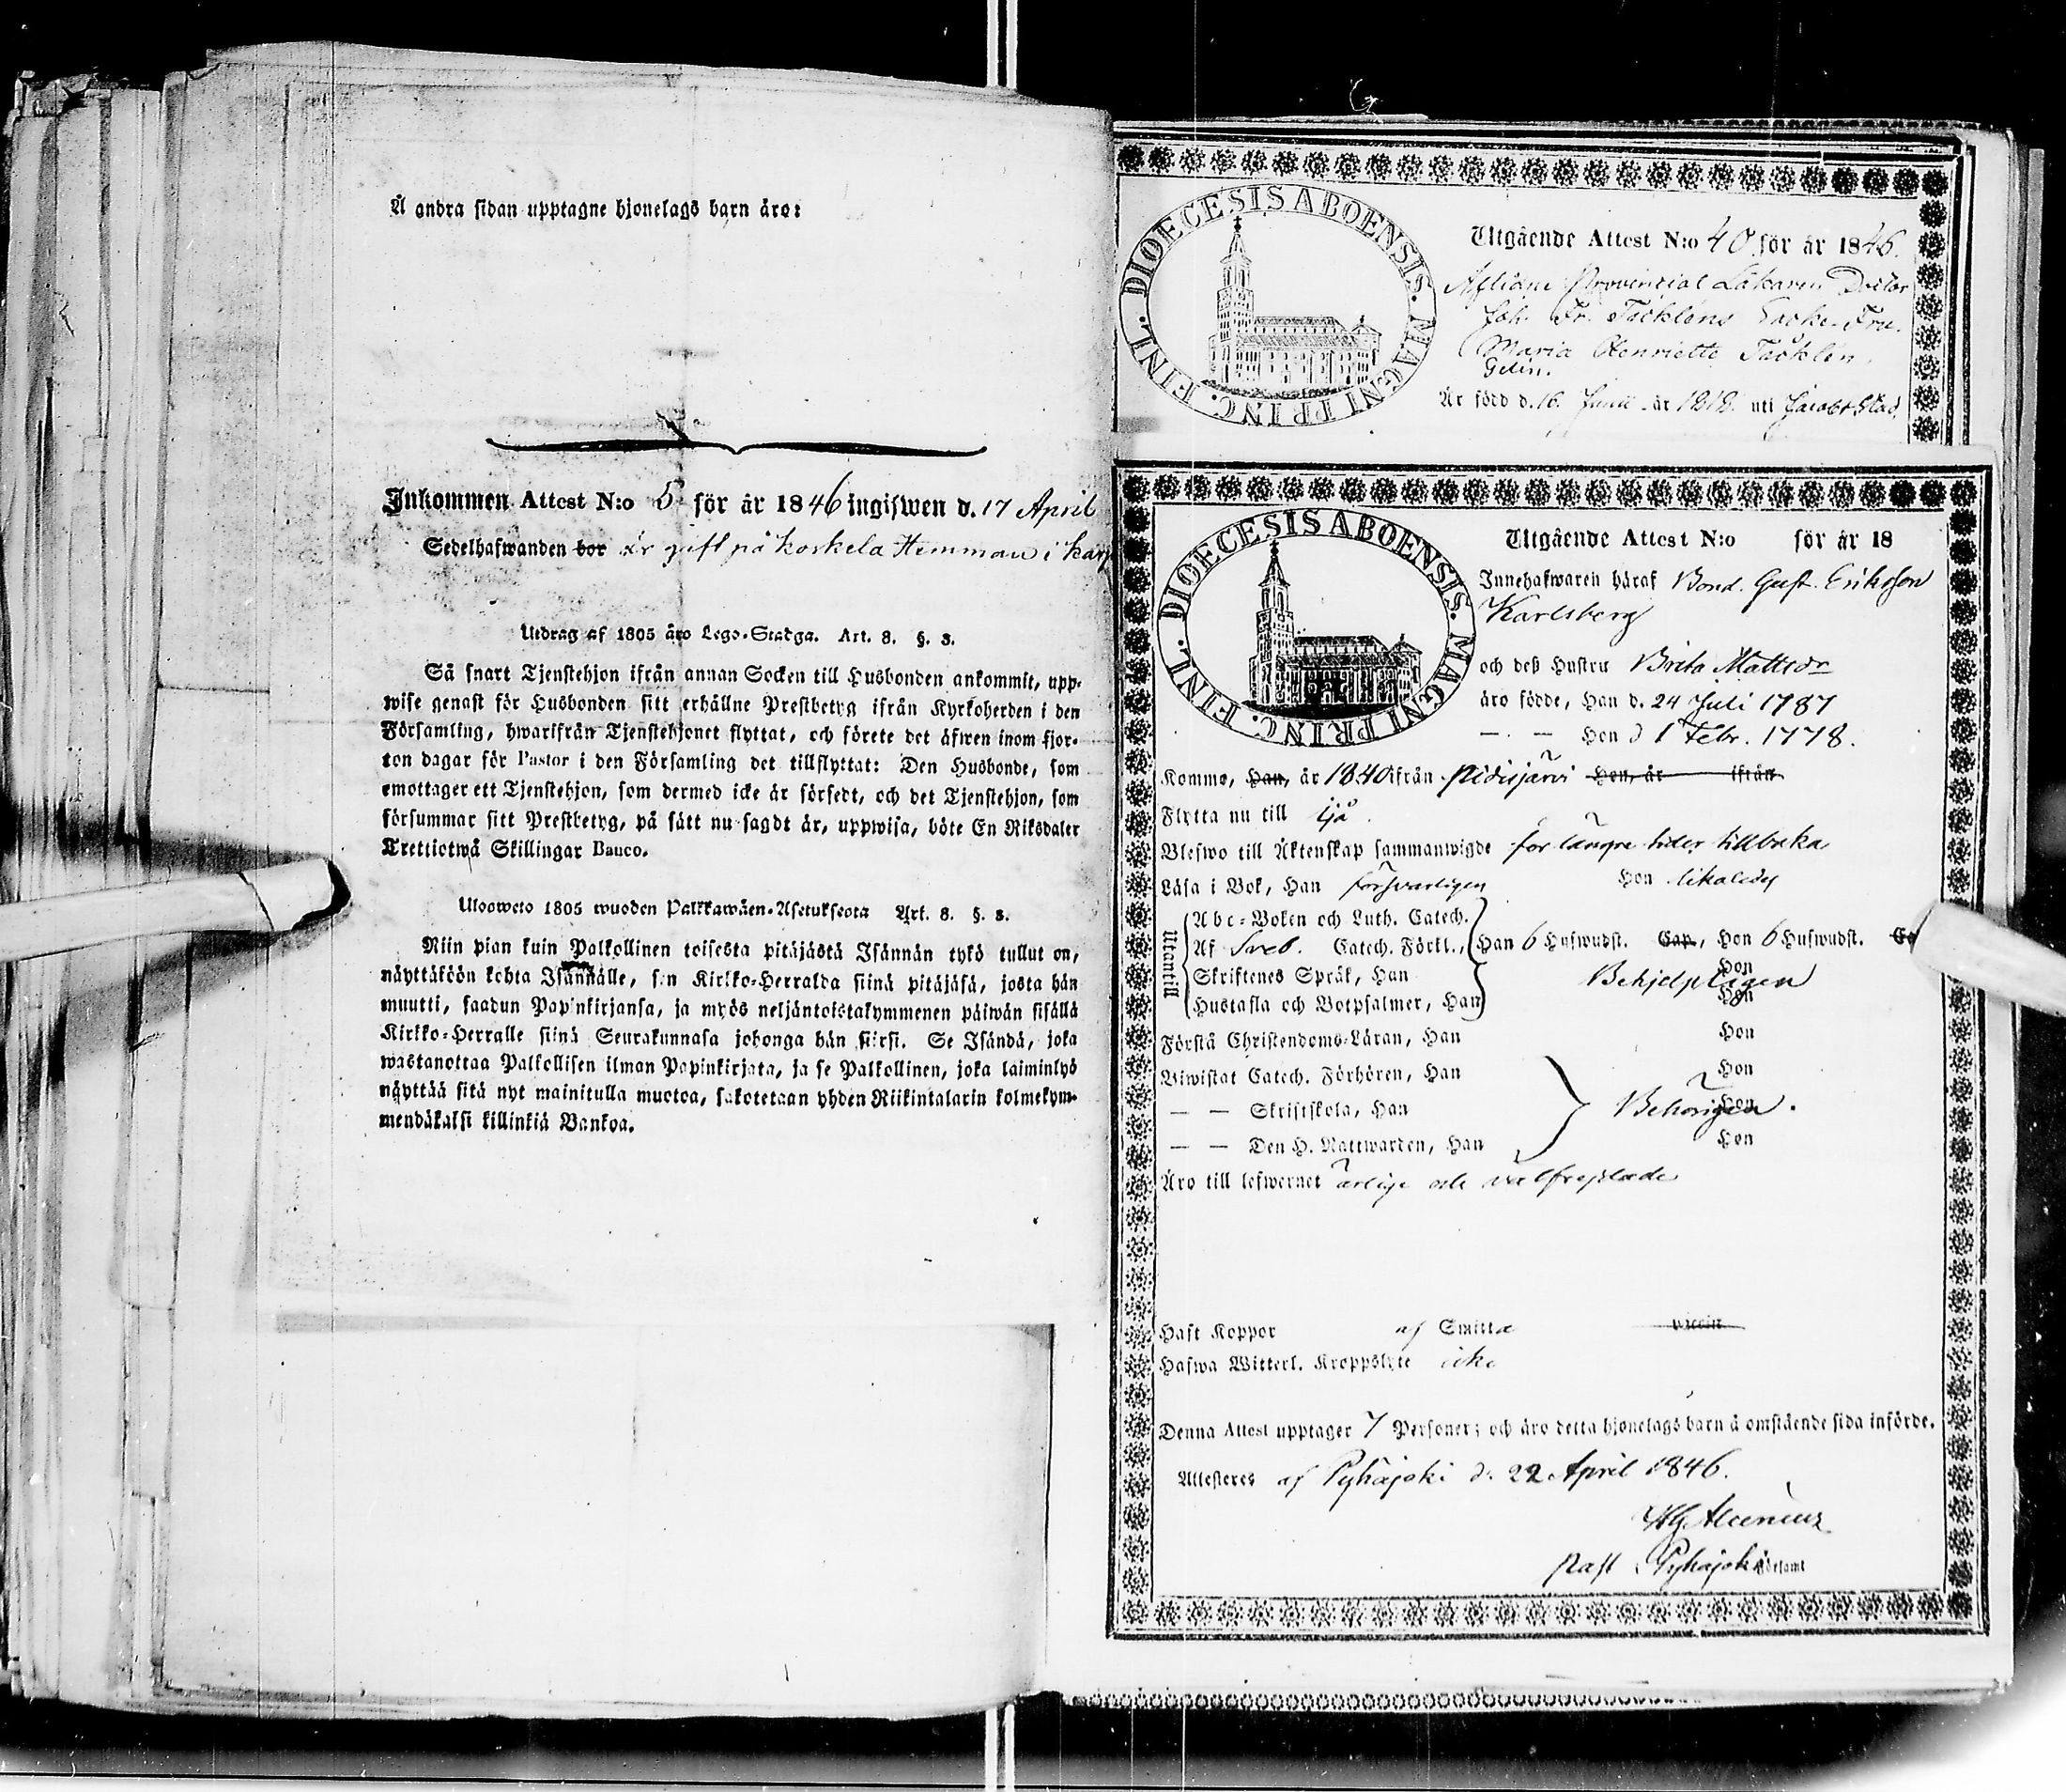 Å andra sidan upptagne hjonelags barn äro:
Inkommen Attest N:o 5 för år 1846 ingifwen d. 17 April
Sedelhafwanden bor är gift på Koskela Hemman i
Utdrag af 1805 års Lego-Stadga. Art. 8. §. 3.
Så snart Tjenstehjon ifrån annan Socken till Husbonden ankommit, upp-
wise genast för Husbonden sitt erhållne Prestbetyg ifrån Kyrkoherden i den
Församling, hwarifrån Tjenstehjonet flyttat, och förete det äfwen inom fjor-
ton dagar för Pastor i den Församling det tillflyttat: Den Husbonde, som
emottager ett Tjenstehjon, som dermed icke är försedt, och det Tjenstehjon, som
försummar sitt Prestbetyg, på sätt nu sagdt är, uppwisa, böte En Riksdaler
Trettiotwå Skillingar Banco.
Ulosweto 1805 wuoden Palkkawäen-Asetuksesta Art. 8. §. 3.
Niin pian kuin Palkollinen toisesta pitäjästä Isännän tykö tullut on,
näyttäköön kohta Isännälle, sen Kirkko-Herralda siinä pitäjäsä, josta hän
muutti, saadun Papinkirjansa, ja myös neljäntoistakymmenen päiwän sisällä
Kirkko-Herralle siinä Seurakunnasa johonga hän siirsi. Se Isändä, joka
wastanottaa Palkollisen ilman Papinkirjata, ja se Palkollinen, joka laiminlyö
näyttää sitä nyt mainitulla muotoa, sakotetaan yhden Riikintalarin kolmekym-
mendäkaksi killinkiä Bankoa.
DIOECESIS ABOENSIS. MAGNI PRINC. FINL.
Utgående Attest N:o 40 för år 1846.
Aflidne Provincial Läkaren Doctor
Joh. Fr. Täcklens Enke-Fru
Maria Henriette Täcklen,
Är född d. 16 Junii år 1818 uti Jacobstad,
DIOECESIS ABOENSIS. MAGNI PRINC. FINL.
Utgående Attest N:o för år 18
Innehafwaren häraf Bond. Gust. Eriksson
Karlsberg
och deß Hustru Brita Mattsdr
äro födde, Han d. 24 Juli 1787
— — Hon d 1 Febr. 1778.
Komme, Han, år 1840 ifrån Pidisjärvi Hon, år ifrån
Flytta nu till Ijå
Blefwo till Äktenskap sammanwigde för längre tider tillbaka
Läsa i Bok, Han försvarligen Hon likaledes
Utantill
Abc-Boken och Luth. Catech.
Af Sveb. Catech. Förkl., Han 6 Hufwudst. Cap., Hon 6 Hufwudst.
Skriftenes Språk, Han Hon
Behjelpligen
Hustafla och Botpsalmer, Han Hon
Förstå Christendoms-Läran, Han Hon
Biwistat Catech. Förhören, Han Hon
— — Skriftskola, Han Behörigen. Hon
— — Den H. Nattwarden, Han Hon
Äro till lefwernet ärlige och välfrejdade
Haft Koppor af Smitta vaccin
Hafwa Witterl. Kroppslyte icke
Denna Attest upptager 7 Personer; och äro detta hjonelags barn å omstående sida införde.
Attesteres af Pyhäjoki d. 22 April 1846.
Past i Pyhäjoki Församl